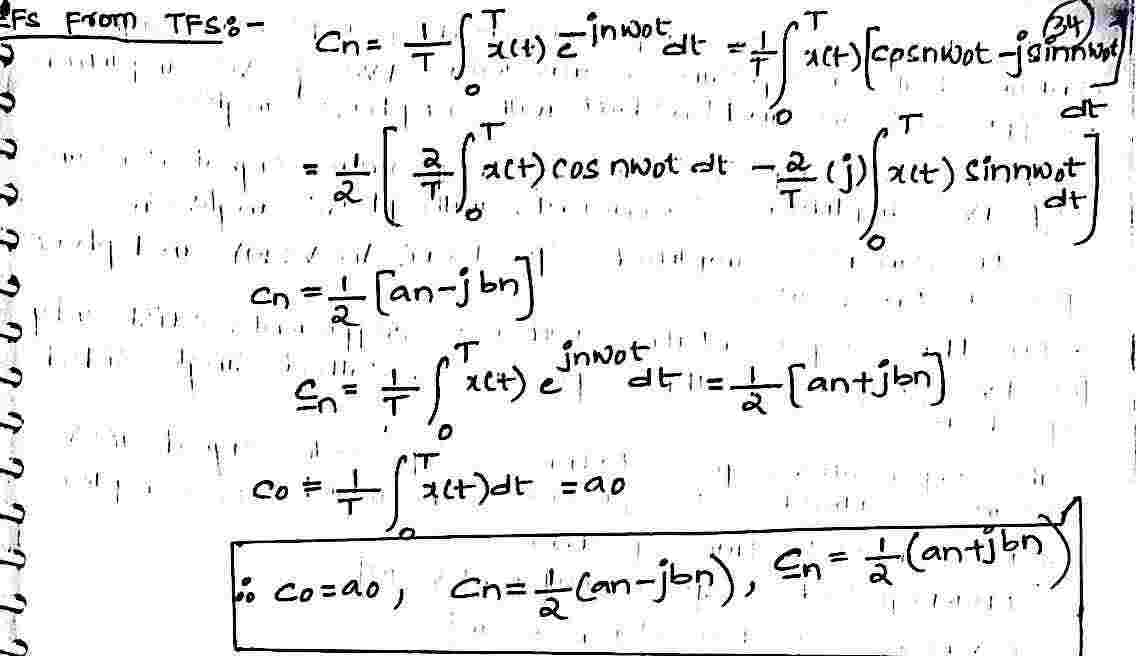 EFS From TFS:-
34
Cn = 1/T ∫₀ᵀ x(t) e^-jnwot dt = 1/T ∫₀ᵀ x(t) [cosnwot - j sinnwot] dt
= 1/2 [ 2/T ∫₀ᵀ x(t) cos nwot dt - 2/T (j) ∫₀ᵀ x(t) sinnwot dt ]
cn = 1/2 [an - jbn]
c-n = 1/T ∫₀ᵀ x(t) e^jnwot dt = 1/2 [an + jbn]
co = 1/T ∫₀ᵀ x(t) dt = ao
∴ co = ao, Cn = 1/2 (an - jbn), c-n = 1/2 (an + jbn)